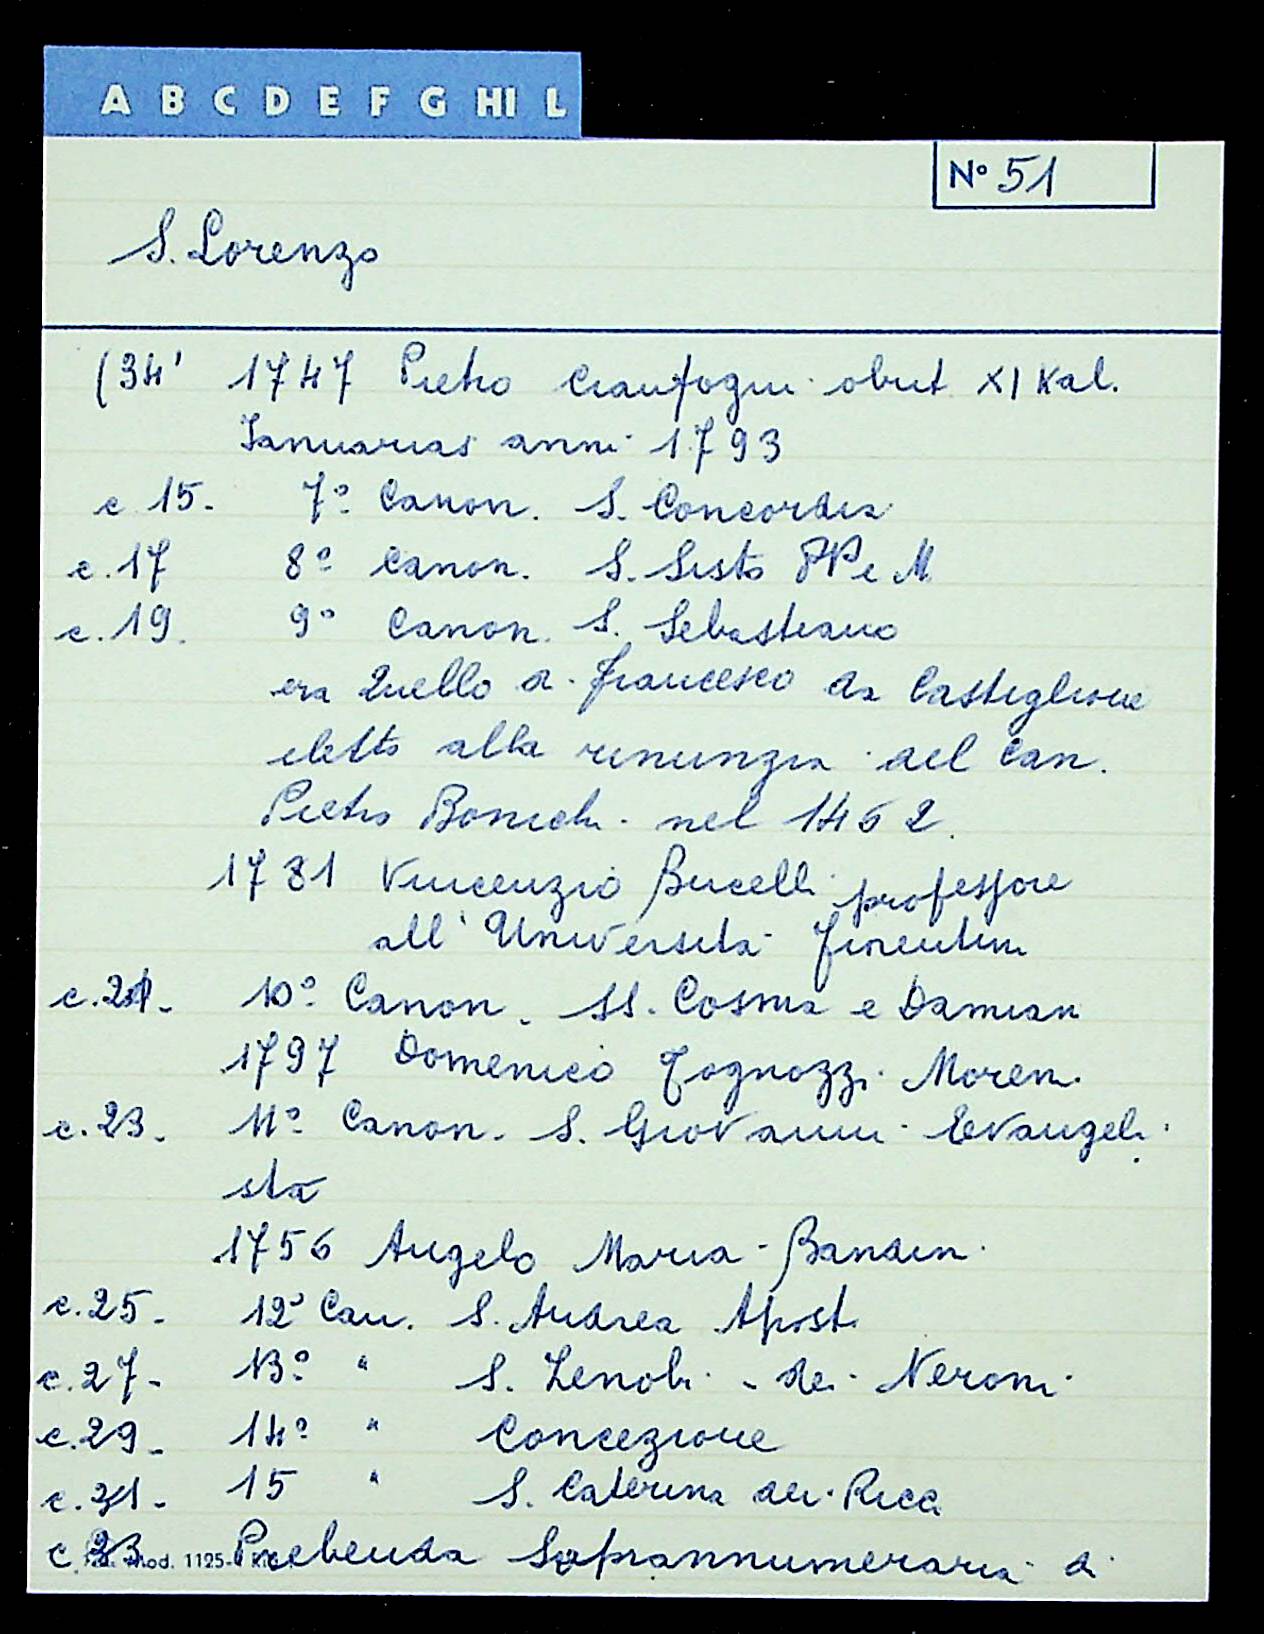 A B C D E F G HI L
N° 51
S. Lorenzo
(34' 1747 Pietro Cianfogni obiit XI Kal.
Ianuarias anni 1793
c 15. 7° Canon. S. Concordia
c. 17 8° Canon. S. Sisto PP e M
c. 19. 9° Canon. S. Sebastiano
era quello di Francesco da Castiglione
eletto alla renunzia del Can.
Pietro Bonichi nel 1462.
1781 Vincenzio Bucelli professore
all' Università fiorentina
c. 21. 10° Canon. SS. Cosma e Damian
1797 Domenico Fognozzi Moreni
c. 23. 11° Canon. S. Giovanni Evangeli
sta
1756 Angelo Maria Bandini
c. 25. 12° Can. S. Andrea Apost.
c. 27. 13° " S. Zenobi - dei Neroni
c. 29. 14° " Concezione
c. 31. 15 " S. Caterina dei Ricci
c. 33 Prebenda Soprannumeraria di
mod. 1125-